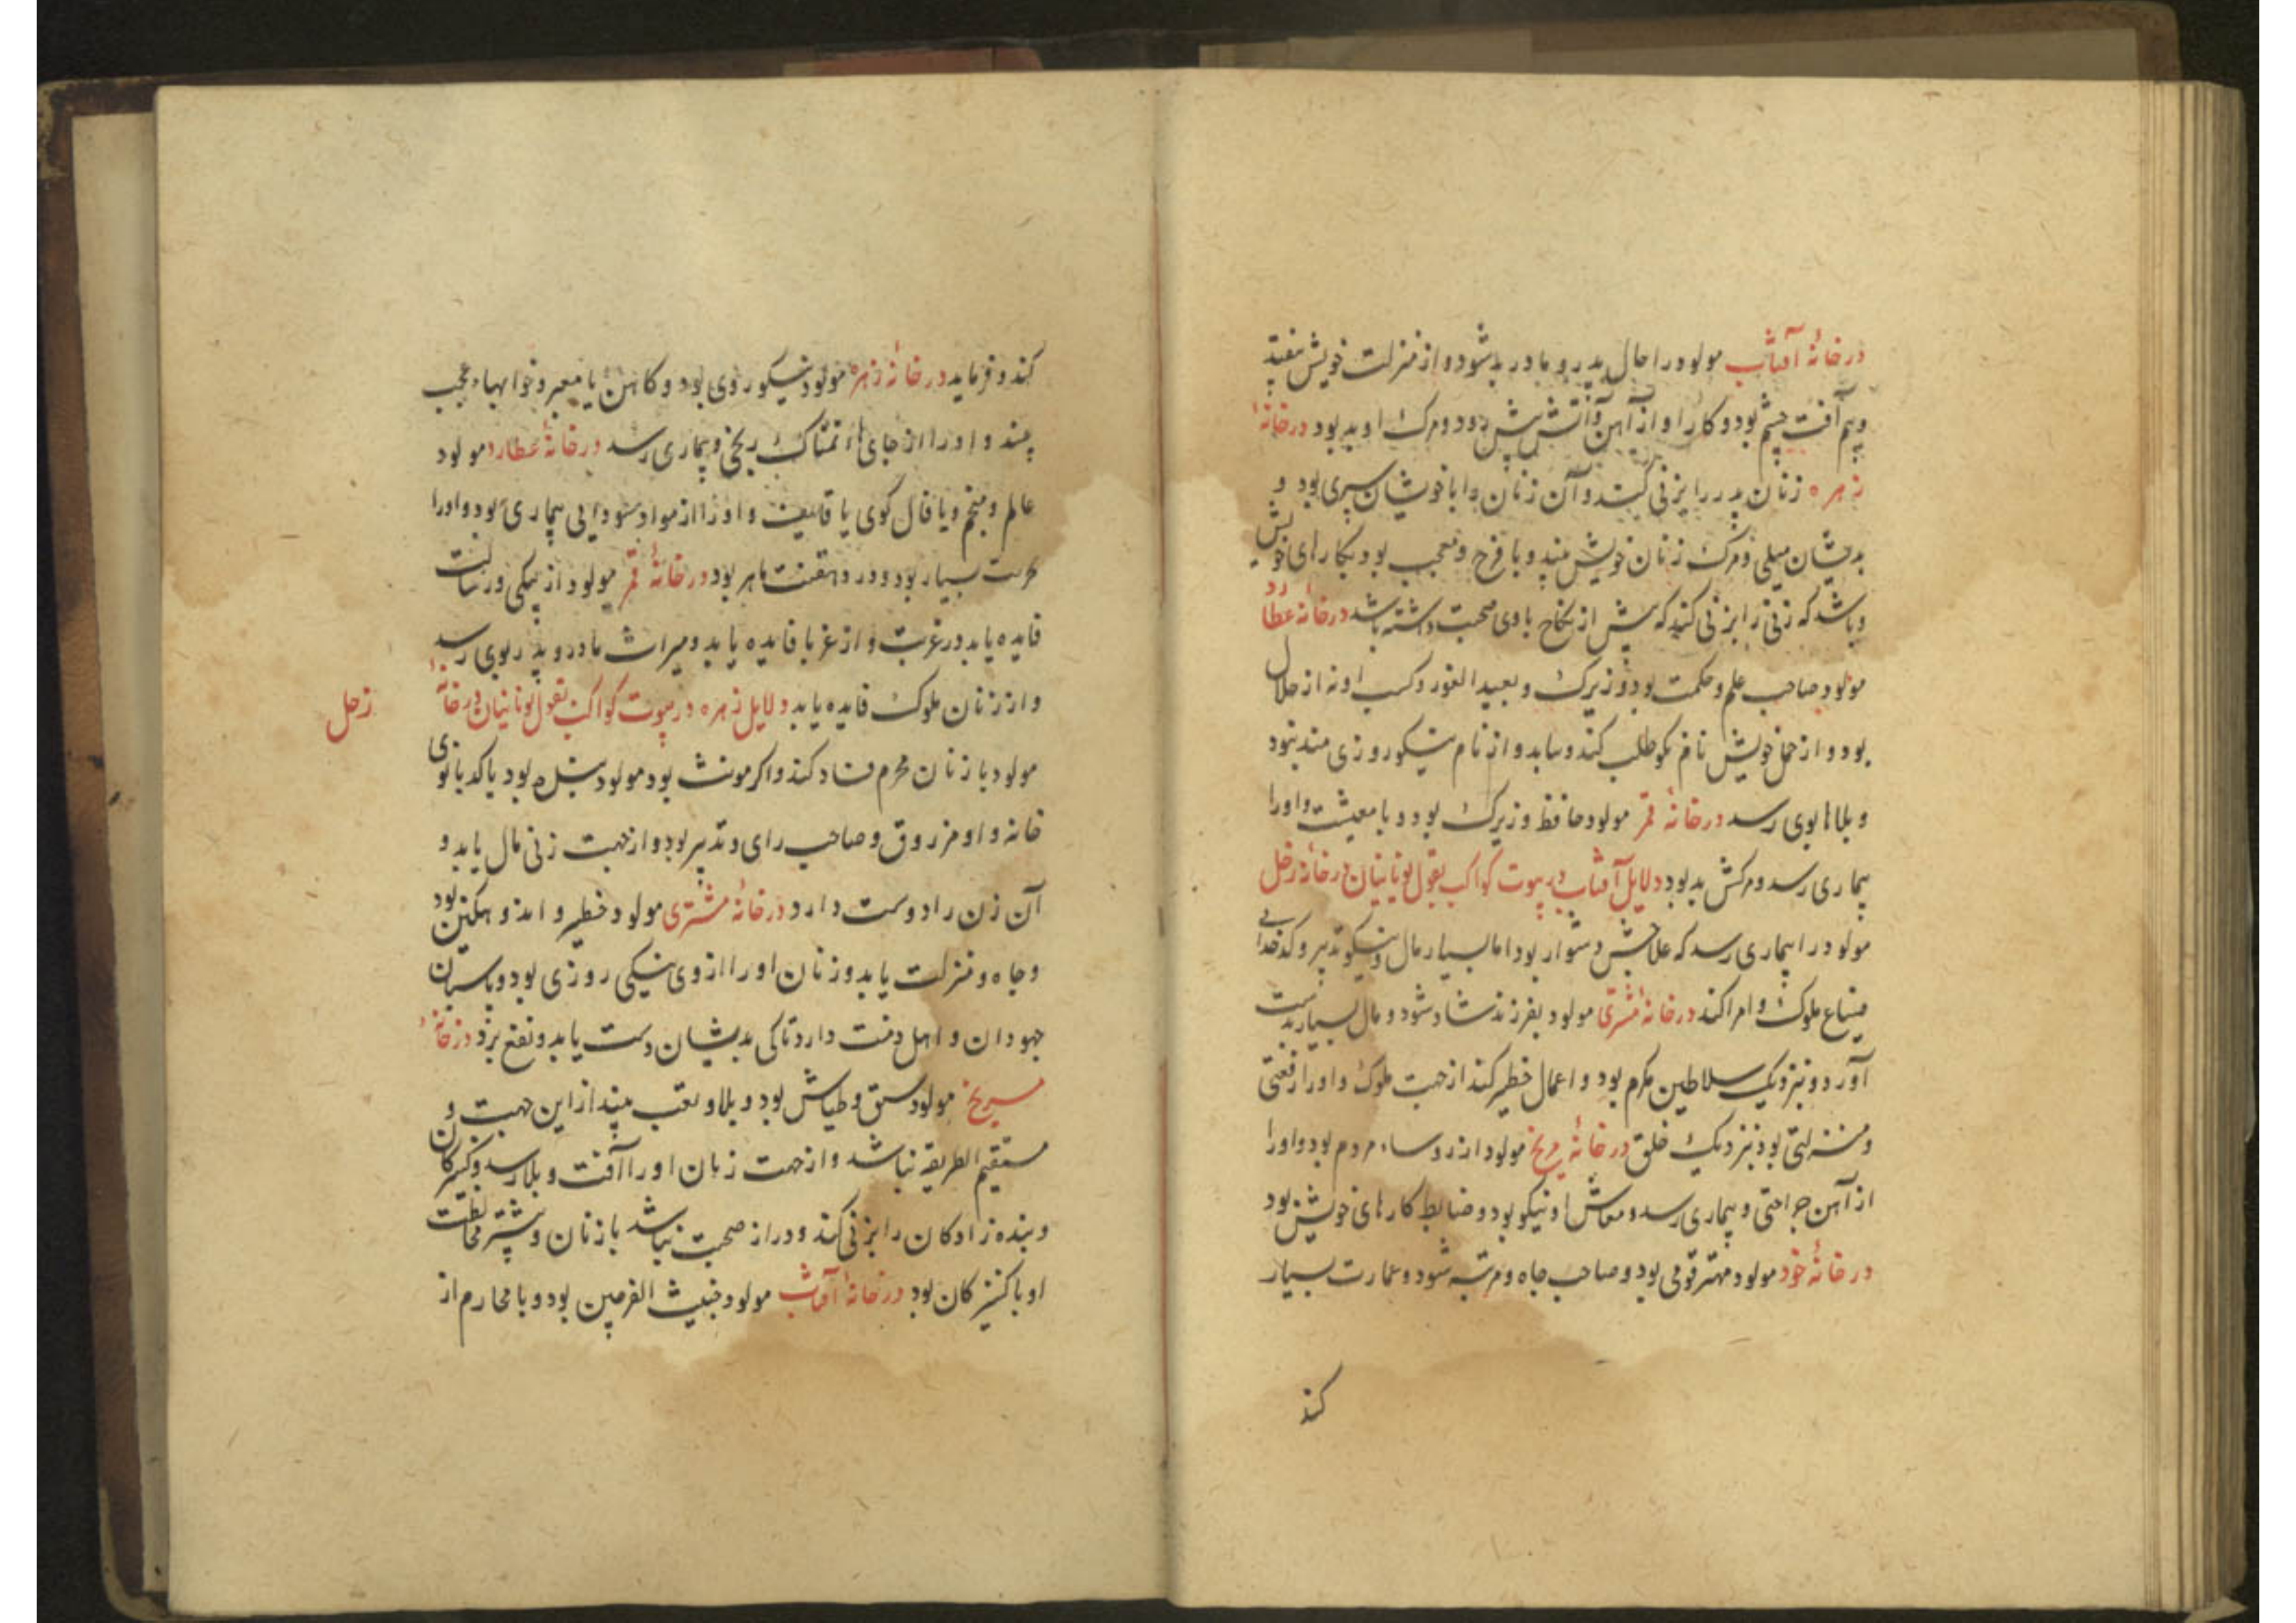 در خانهٔ آفتاب مولود را حال پدر و مادر بد شود و از منزلت خویش بیفتد
و بیم آفت چشم بود و کار او از آهن و آتش بیش بود و مرک او بد بود در خانهٔ
زهره زنان پدر را بزنی کند و آن زنان را با خویشان سری بود و
بدیشان میلی و مرک زنان خویش بیند و با فرح و معجب بود بکارهای خویش
و باشد که زنی را بزنی کند که پیش از نکاح با وی صحبت داشته باشد در خانهٔ عطارد
مولود صاحب علم و حکمت بود و زیرک و بعید الغور و کسب او نه از حلال
بود و از خویش نام نکو طلب کند و نیابد و از نام نیکو روزی مند نبود
و بلاها بوی رسد در خانهٔ قمر مولود حافظ و زیرک بود و با معیشت و او را
بیماری رسد و مرکش بد بود دلایل آفتاب در بیوت کواکب بقول یونانیان در خانهٔ زحل
مولود را بیماری رسد که علاجش دشوار بود اما بسیار مال و نیکو تدبیر و کدخدایی
ضیاع ملوک و امرا کند در خانهٔ مشتری مولود بفرزند شاد شود و مال بسیار بدست
آورد و نزدیک سلاطین مکرم بود و اعمال خطیر کند از جهت ملوک و او را رفعتی
و منزلتی بود نزدیک خلق در خانهٔ مریخ مولود از روساء مردم بود و او را
از آهن جراحتی و بیماری رسد و معاش او نیکو بود و ضابط کارهای خویش بود
در خانهٔ خود مولود مهتر قومی بود و صاحب جاه و مرتبه شود و عمارت بسیار
کند
کند و فرماید در خانهٔ زهره مولود نیکو روی بود و کاهن یا معبر و خوابهاء عجب
بیند و او را از جای نمناک رنجی و بیماری رسد در خانهٔ عطارد مولود
عالم و منجم و یا فال کوی یا قایف و او را از مواد سودایی بیماری بود و او را
بسیار بود و در دهقنت ماهر بود در خانهٔ قمر مولود از پیکی و رسالت
فایده یابد در غربت و از غربا فایده یابد و میراث مادر و پدر بوی رسد
و از زنان ملوک فایده یابد دلایل زهره در بیوت کواکب بقول یونانیان در خانهٔ
زحل
مولود با زنان محرم فساد کند و اکر مونث بود مولود بود یا کدبانوی
خانه و او مرزوق و صاحب رای و تدبیر بود و از جهت زنی مال یابد و
آن زن را دوست دارد در خانهٔ مشتری مولود خطیر و بود
و جاه و منزلت یابد و زنان او را از وی نیکی روزی بود و
جهودان و اهل ذمت دارد تا کی بدیشان دست یابد و نفع برد در خانهٔ
مریخ مولود و طیاش بود و بلا و تعب بیند از این جهت و
مستقیم الطریقه نباشد و از جهت زنان او را آفت و بلا رسد و کنیزکان
و بنده زادکان را بزنی کند و دراز صحبت نباشد با زنان و بیشتر مخالطت
او با کنیزکان بود در خانهٔ آفتاب مولود خبیث الفرجین بود و با محارم از